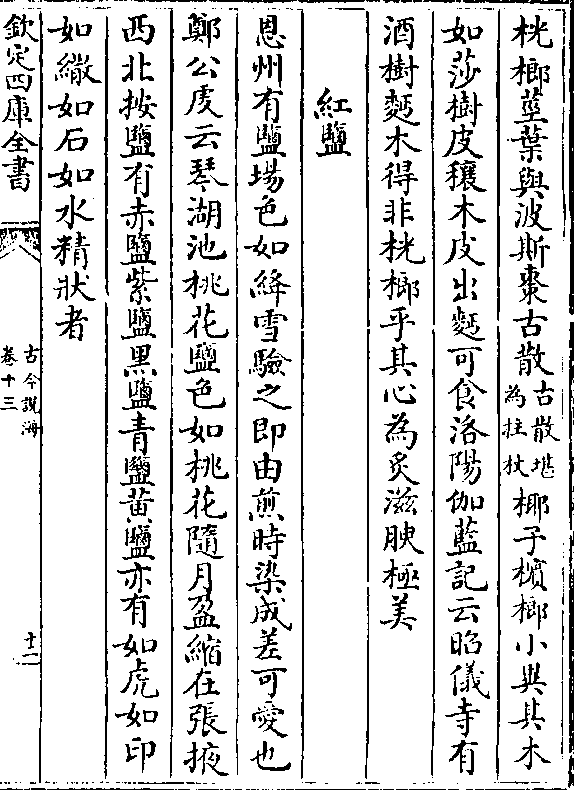 桄榔莖葉與波斯棗古散古散堪為拄杖椰子檳榔小異其木
如莎樹皮穰木皮出麵可食洛陽伽藍記云昭儀寺有
酒樹麵木得非桄榔乎其心為炙滋腴極美
紅鹽
恩州有鹽場色如絳雪驗之即由煎時染成差可愛也
鄭公虔云琴湖池桃花鹽色如桃花隨月盈縮在張掖
西北按鹽有赤鹽紫鹽黑鹽青鹽黃鹽亦有如虎如印
如繖如石如水精狀者
欽定四庫全書
古今說海
卷十三
十二